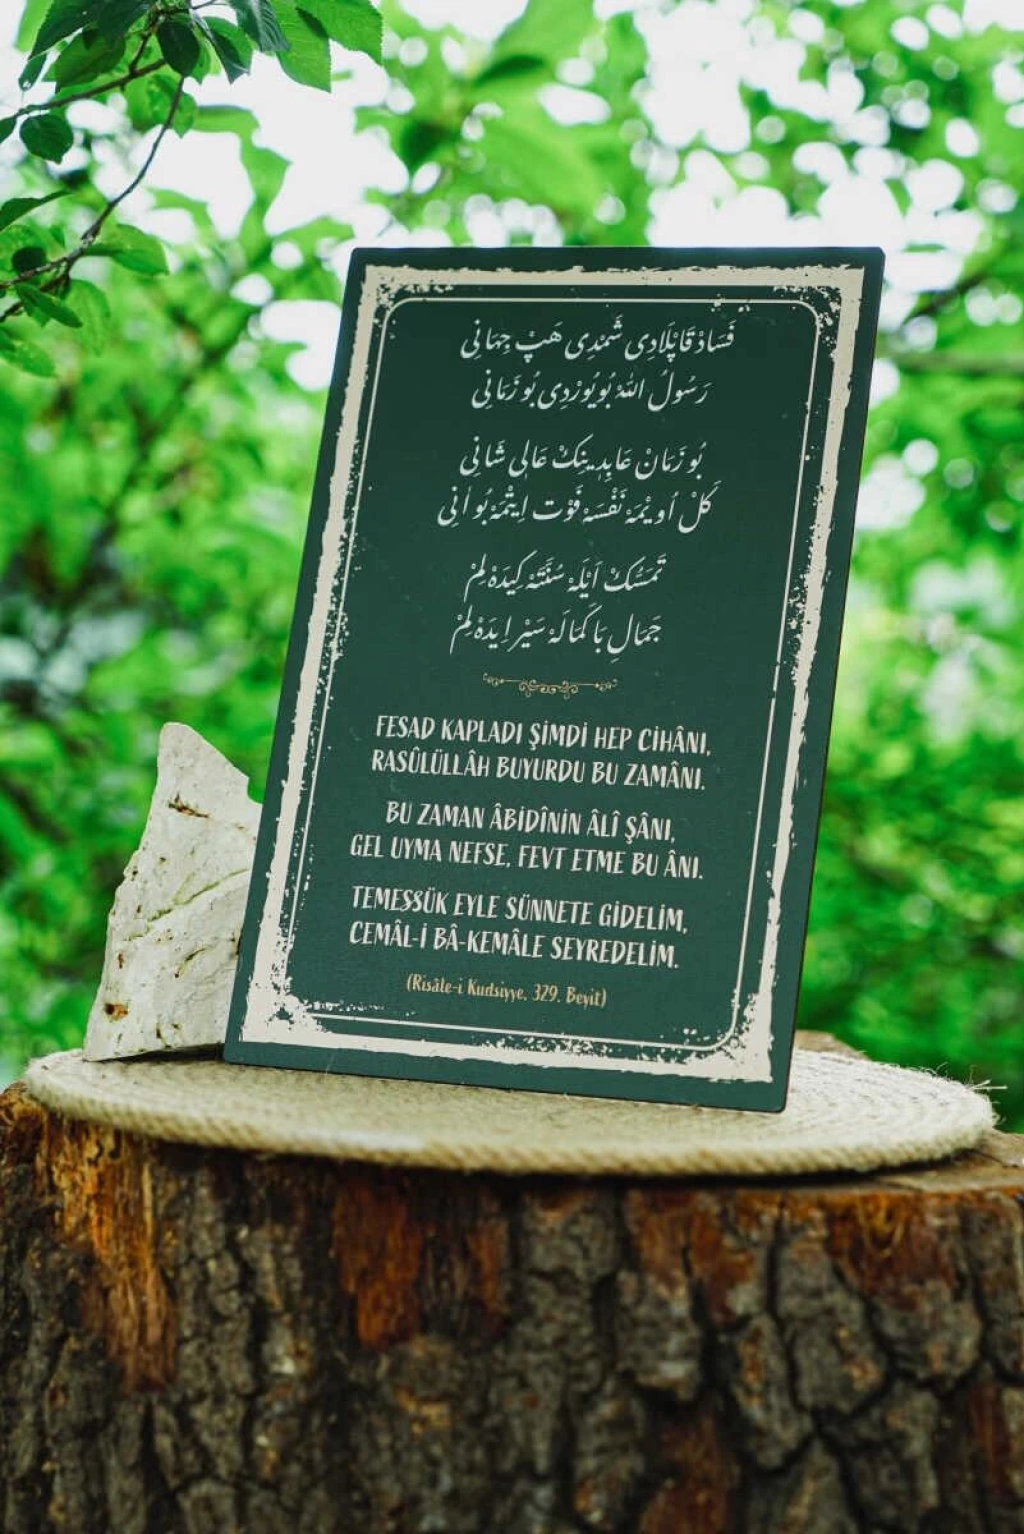 فَسَادْ قَاپْلَادِی شَمْدِی هَپْ جِهَانِی
رَسُولُ اللّٰهْ بُویُورْدِی بُو زَمَانِی
بُو زَمَانْ عَابِدِینِكْ عَالِی شَانِی
كَلْ اُویْمَهْ نَفْسَهْ فَوْت اِیتْمَهْ بُو اٰنِی
تَمَسُّكْ اَیْلَهْ سُنَّتَهْ كِیدَهْ لِمْ
جَمَالِ بَا كَمَالَهْ سَیْر اِیدَهْ لِمْ
FESAD KAPLADI ŞİMDİ HEP CİHÂNI,
RASÛLÜLLÂH BUYURDU BU ZAMÂNI.
BU ZAMAN ÂBİDÎNİN ÂLÎ ŞÂNI,
GEL UYMA NEFSE, FEVT ETME BU ÂNI.
TEMESSÜK EYLE SÜNNETE GİDELİM,
CEMÂL-İ BÂ-KEMÂLE SEYREDELİM.
(Risâle-i Kudsiyye, 329. Beyit)